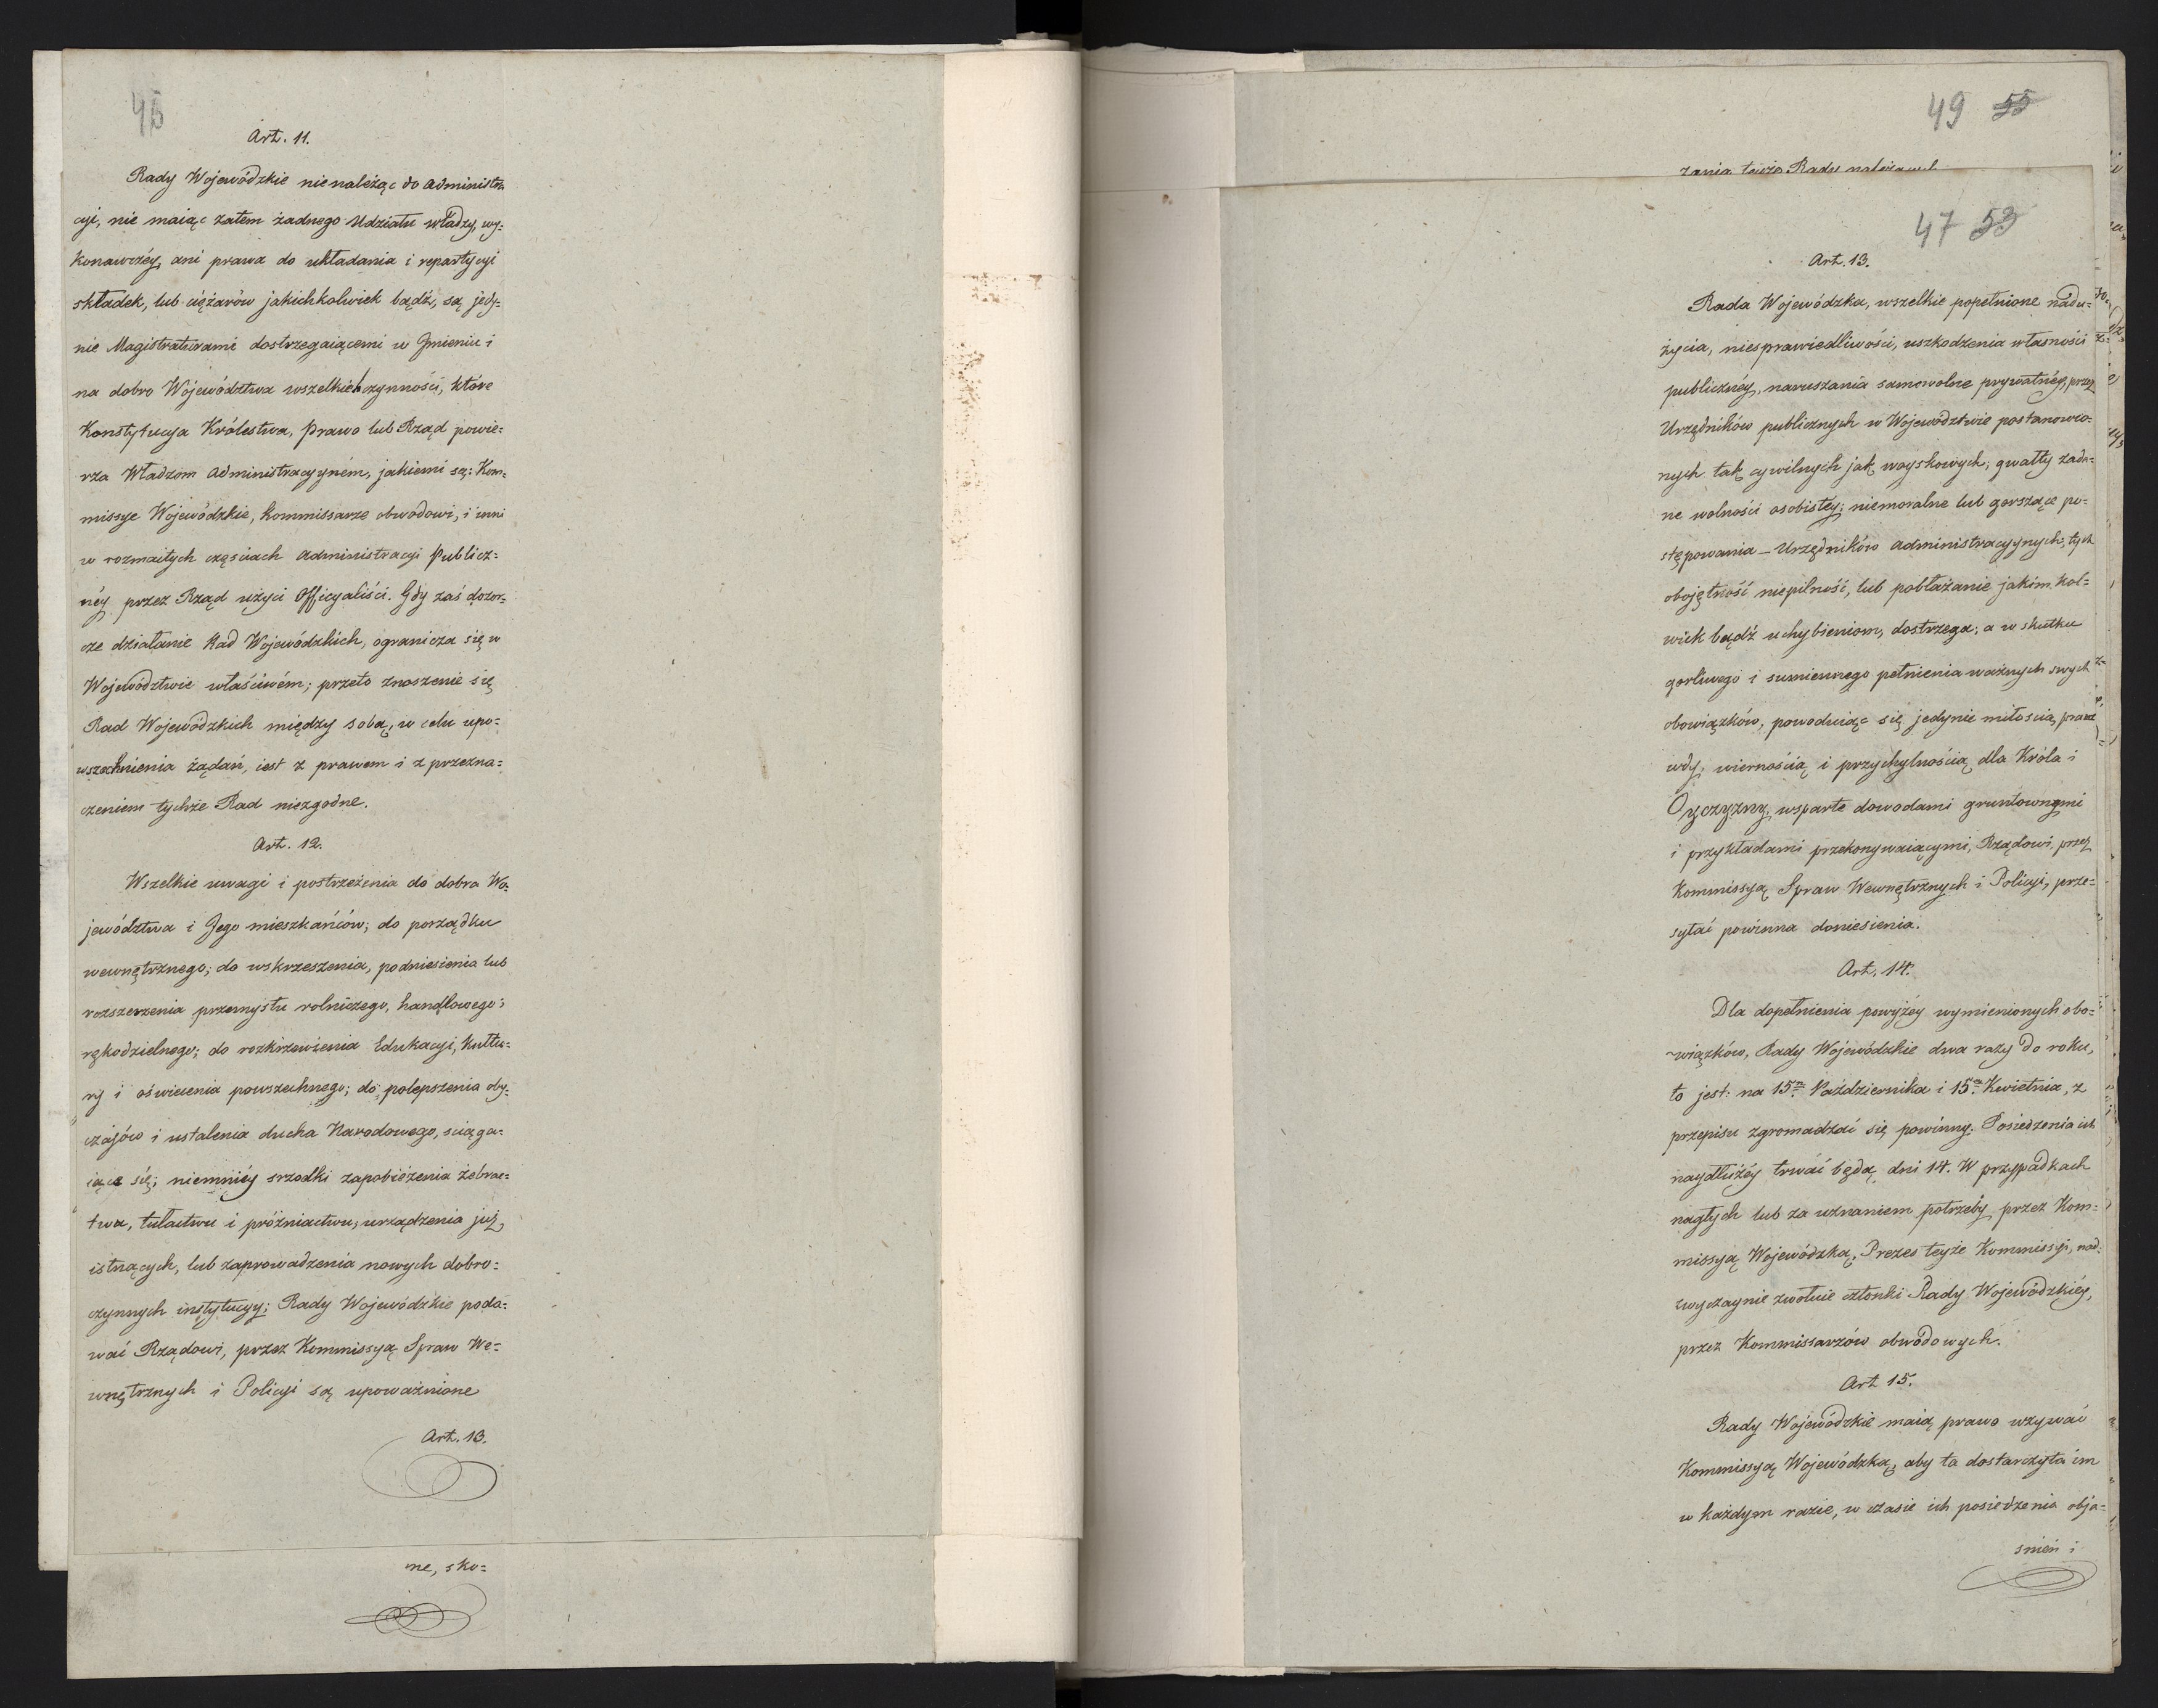 46
Art. 11.
Rady Wojewódzkie nienależąc do administra
cyi, nie maiąc zatem żadnego udziału władzy, wy=
konawczéy, ani prawa do układania i repartycyi
składek, lub ciężarów jakichkolwiek bądź, są jedy=
nie Magistraturami dostrzegaiącemi w Jmieniu i
na dobro Województwa wszelkich czynności, które
Konstytucya Królestwa, Prawo lub Rząd powie=
rza Władzom administracyyném, jakiemi są: Kom=
missye Wojewódzkie, Kommissarze obwodowi, i inni
w rozmaitych częściach administracyi Publicz=
néy przez Rząd użyci Officyaliści. Gdy zaś dozor=
cze działanie Rad Wojewódzkich, ogranicza się w
Województwie właściwém; przeto znoszenie się
Rad Wojewódzkich między sobą, w celu upo=
wszechnienia żądań, iest z prawem i z przezna=
czeniem tychże Rad niezgodne.
Art. 12.
Wszelkie uwagi i postrzeżenia do dobra Wo=
jewództwa i Jego mieszkańców; do porządku
wewnętrznego; do wskrzeszenia, podniesienia lub
rozszerzenia przemysłu rolniczego, handlowego;
rękodzielnego; do rozkrzewienia Edukacyi, Kultu=
ry i oświecenia powszechnego; do polepszenia oby=
czajów i ustalenia ducha Narodowego, sciąga=
iące się; niemniéy srzodki zapobieżenia żebrac=
twu, tułactwu i próżniactwu, urządzenia już
istnących, lub zaprowadzenia nowych dobro=
czynnych instytucyy; Rady Wojewódzkie poda=
wać Rządowi, przez Kommissyą Spraw We=
wnętrznych i Policyi są upoważnione
Art. 13.
ne, sko=
49 55
zania teyże Rady należących
47 53
Art. 13.
Rada Wojewódzka, wszelkie popełnione nadu=
życia, niesprawiedliwości, uszkodzenia własności
publicznéy, naruszania samowolne prywatnéy, przez
Urzędników publicznych w Województwie postanowio=
nych tak cywilnych jak woyskowych; gwałty zada=
ne wolności osobistéy; niemoralne lub gorszące po=
stępowania – Urzędników administracyynych, tych
obojętność niepilność, lub pobłażanie jakim kol=
wiek bądź uchybieniom, dostrzega; a w skutku
gorliwego i sumiennego pełnienia ważnych swych
obowiązków, powoduiąc się jedynie miłością praw
wdy, wiernością i przychylnością dla Króla i
Oyczyzny, wsparte dowodami gruntownymi
i przykładami przekonywaiącymi, Rządowi przez
Kommissyą Spraw Wewnętrznych i Policyi, prze=
syłać powinna doniesienia.
Art. 14.
Dla dopełnienia powyżéy wymienionych obo=
wiązków, Rady Wojewódzkie dwa razy do roku,
to jest: na 15m Października i 15m Kwietnia, z
przepisu zgromadzać się powinny. Posiedzenia ich
naydłużéy trwać będą dni 14. W przypadkach
nagłych lub za uznaniem potrzeby przez Kom=
missyą Wojewódzką, Prezes teyże Kommissyi, nad=
zwyczaynie zwołuie członki Rady Wojewódzkiéy,
przez Kommissarzów obwodowych.
Art 15.
Rady Wojewódzkie maią prawo wzywać
Kommissyą Wojewódzką, aby ta dostarczyła im
w każdym razie, w czasie ich posiedzenia obja=
snień i